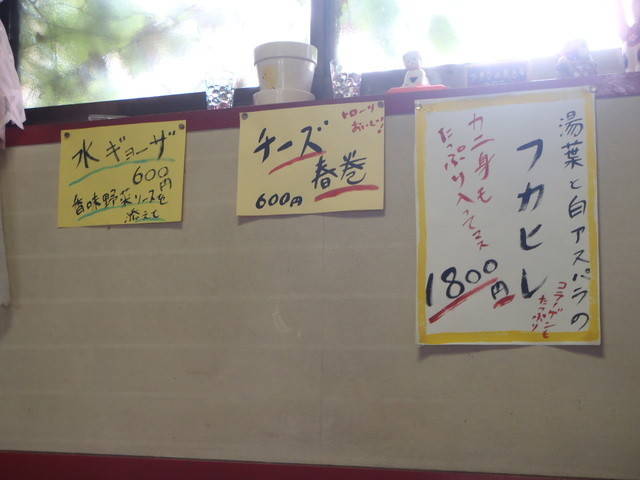 水ギョーザ
600円
香味野菜ソースを
添えて
トローリ
おいしい!
チーズ
春巻
600円
湯葉と白アスパラの
フカヒレ
コラーゲンも
たっぷり
カニ身も
たっぷり入ってマス
1800円